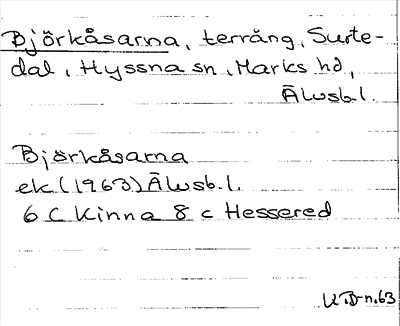 Björkåsarna, terräng, Surte-
dal, Hyssna sn, Marks hd,
Älvsb.l.
Björkåsarna
ek (1963) Älvsb.l.
6 C Kinna 8 c Hessered